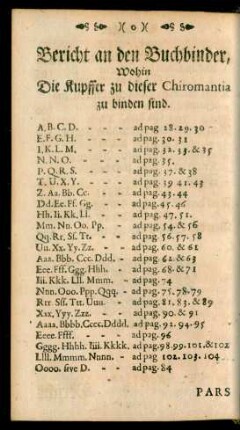 )( o )(
Bericht an den Buchbinder,
Wohin
Die Kupffer zu dieser Chiromantia
zu binden sind.
A. B. C. D. - - - ad pag. 28. 29. 30
E. F. G. H. - - - ad pag. 30. 31
I. K. L. M. - - - ad pag. 32. 33. & 35
N. N. O. - - - ad pag. 35.
P. Q. R. S. - - - ad pag. 37. & 38
T. U. X. Y. - - - ad pag. 39 41. 43
Z. Aa. Bb. Cc. - - ad pag. 43. 44
Dd. Ee. Ff. Gg. - - ad pag. 45. 46
Hh. Ii. Kk. Ll. - - ad pag. 47. 51.
Mm. Nn. Oo. Pp. - - ad pag. 54. & 56
Qq. Rr. Sf. Tt. - - ad pag. 56. 57. 58
Uu. Xx. Yy. Zz. - - ad pag. 60. & 61
Aaa. Bbb. Ccc. Ddd. - ad pag. 62. & 63
Eee. Fff. Ggg. Hhh. - ad pag. 68. & 71
Iii. Kkk. Lll. Mmm. - ad pag. 74
Nnn. Ooo. Ppp. Qqq. - ad pag. 75. 78. 79
Rrr. Sff. Ttt. Uuu. - ad pag. 81. 83. & 89
Xxx. Yyy. Zzz. - - ad pag. 90. & 91
Aaaa. Bbbb. Cccc. Dddd. ad pag. 91. 94. 95
Eeee. Ffff. - - ad pag. 96
Gggg. Hhhh. Iiii. Kkkk. ad pag. 98. 99. 101. & 102
Llll. Mmmm. Nnnn. - ad pag. 102. 103. 104
Oooo. sive D. - - ad pag. 84
PARS